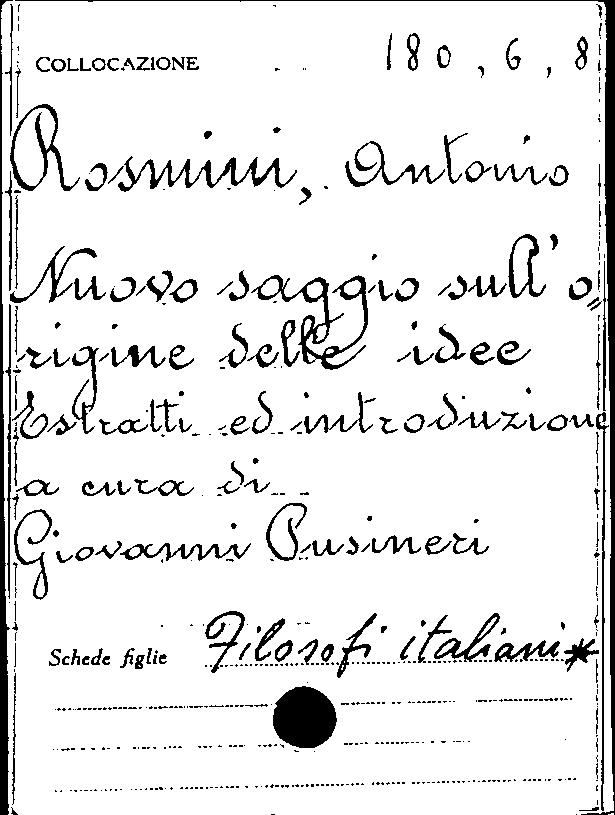 COLLOCAZIONE 180, 6, 8
Rosmini, Antonio
Nuovo saggio sull'o
rigine delle idee
Estratti ed introduzione
a cura di
Giovanni Pusineri
Schede figlie Filosofi italiani*